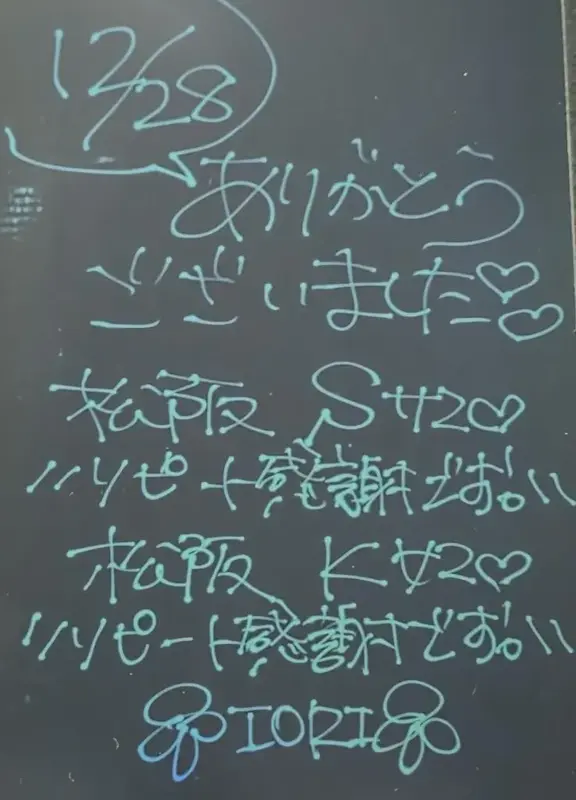 12/28
ありがとう
ございました♡♡
松阪 Sサマ♡
\\リピート感謝です。//
松阪 Kサマ♡
\\リピート感謝です。//
IORI